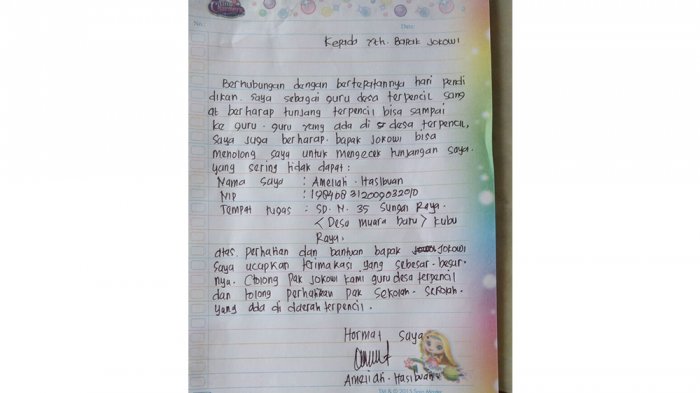 No.
Date:
Kepada Yth. Bapak Jokowi
Berhubungan dengan bertepatannya hari pendi
dikan. Saya sebagai guru desa terpencil sang
at berharap tunjang terpencil bisa sampai
ke guru-guru yang ada di desa terpencil,
Saya juga berharap bapak Jokowi bisa
menolong saya untuk mengecek tunjangan saya.
yang sering tidak dapat:
Nama saya : Ameliah. Hasibuan
NIP :
Tempat tugas : SD. N. 35 Sungai Raya.
<Desa muara baru> Kubu
Raya.
atas perhatian dan bantuan bapak Jokowi
saya ucapkan terimakasi yang sebesar-besar
nya. (Tolong pak Jokowi kami guru desa terpencil
dan tolong perhatikan pak sekolah-sekolah.
yang ada di daerah terpencil.
Hormat saya
Ameliah-Hasibuan